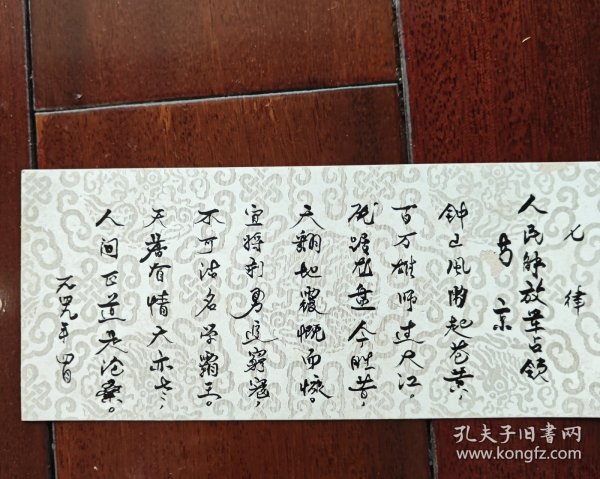 七律
人民解放军占领
南京
钟山风雨起苍黄，
百万雄师过大江，
虎踞龙盘今胜昔，
天翻地覆慨而慷。
宜将剩勇追穷寇，
不可沽名学霸王。
天若有情天亦老，
人间正道是沧桑。
一九四九年四月
孔夫子旧书网
www.kongfz.com